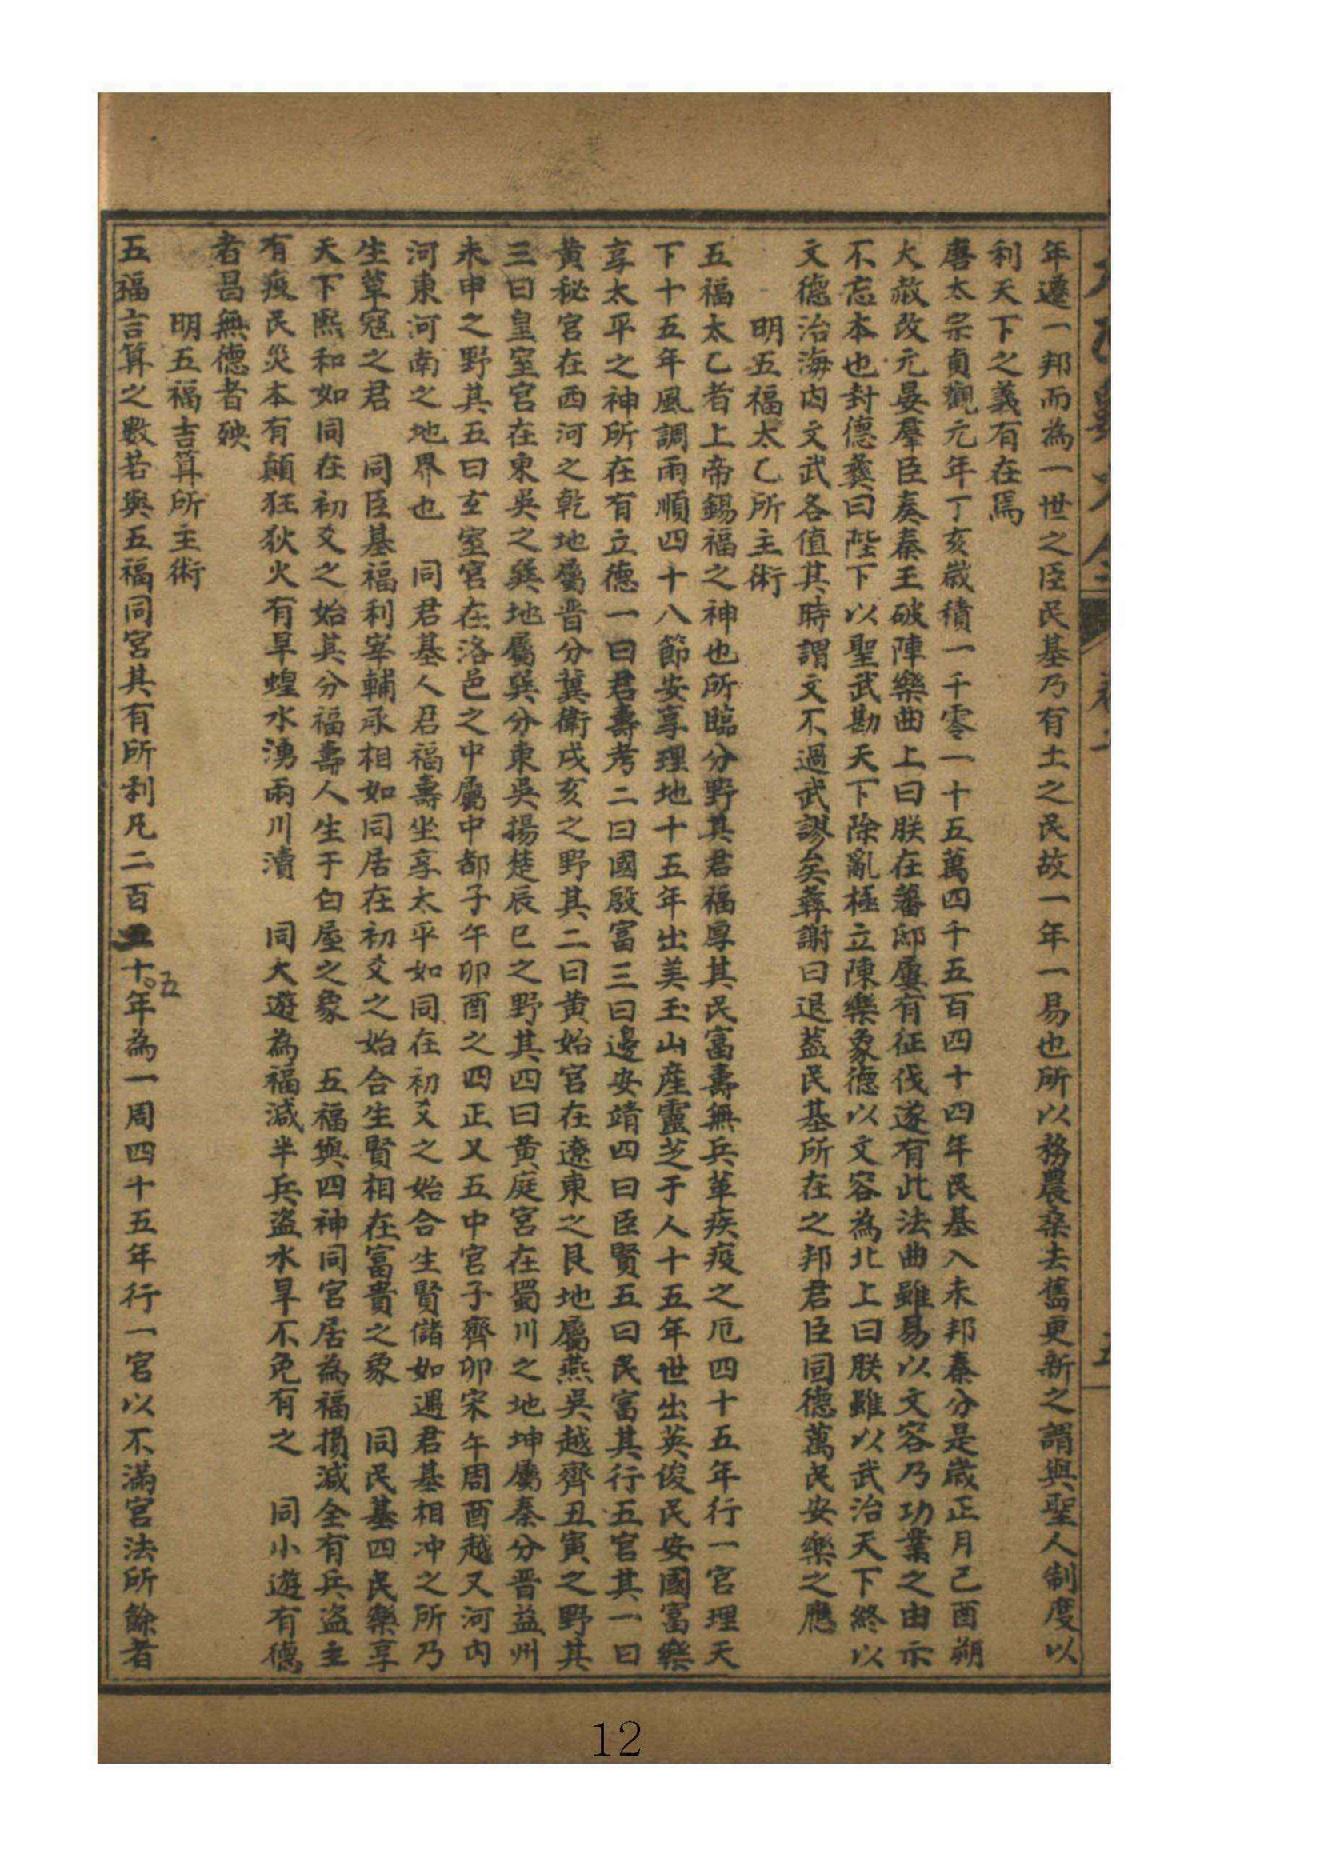 年遷一邦而為一世之臣民基乃有土之民故一年一易也所以務農桑去舊更新之謂與聖人制度以
利天下之義有在焉
唐太宗貞觀元年丁亥歲積一千零一十五萬四千五百四十四年民基入未邦秦分是歲正月己酉朔
大赦改元宴羣臣奏秦王破陣樂曲上曰朕在藩邸屢有征伐遂有此法曲雖易以文容乃功業之由示
不忘本也封德彝曰陛下以聖武勘天下除亂極立陳樂象德以文容為北上曰朕雖以武治天下終以
文德治海內文武各值其時謂文不過武謬矣彝謝曰退蓋民基所在之邦君臣同德萬民安樂之應
明五福太乙所主術
五福太乙者上帝錫福之神也所臨分野其君福厚其民富壽無兵革疾疫之厄四十五年行一宮理天
下十五年風調雨順四十八節安享理地十五年出美玉山產靈芝于人十五年世出英俊民安國富樂
享太平之神所在有立德一曰君壽考二曰國殷富三曰邊安靖四曰臣賢五曰民富其行五宮其一曰
黃秘宮在西河之乾地屬晋分冀衛戌亥之野其二曰黃始宮在遼東之艮地屬燕吳越齊丑寅之野其
三曰皇室宮在東吳之巽地屬巽分東吳揚楚辰巳之野其四曰黃庭宮在蜀川之地坤屬秦分晋益州
未申之野其五曰玄室宮在洛邑之中屬中都子午卯酉之四正又五中宮子齊卯宋午周酉越又河內
河東河南之地界也　同君基人君福壽坐享太平如同在初爻之始合生賢儲如遇君基相冲之所乃
生草寇之君　同臣基福利宰輔承相如同居在初爻之始合生賢相在富貴之象　同民基四民樂享
天下熙和如同在初爻之始其分福壽人生于白屋之象　五福與四神同宮居為福損減全有兵盜主
有疫民災本有顛狂狄火有旱蝗水湧兩川瀆　同大遊為福減半兵盜水旱不免有之　同小遊有德
者昌無德者殃
明五福吉算所主術
五福言算之數若與五福同宮其有所利凡二百五十五年為一周四十五年行一宮以不滿宮法所餘者
12